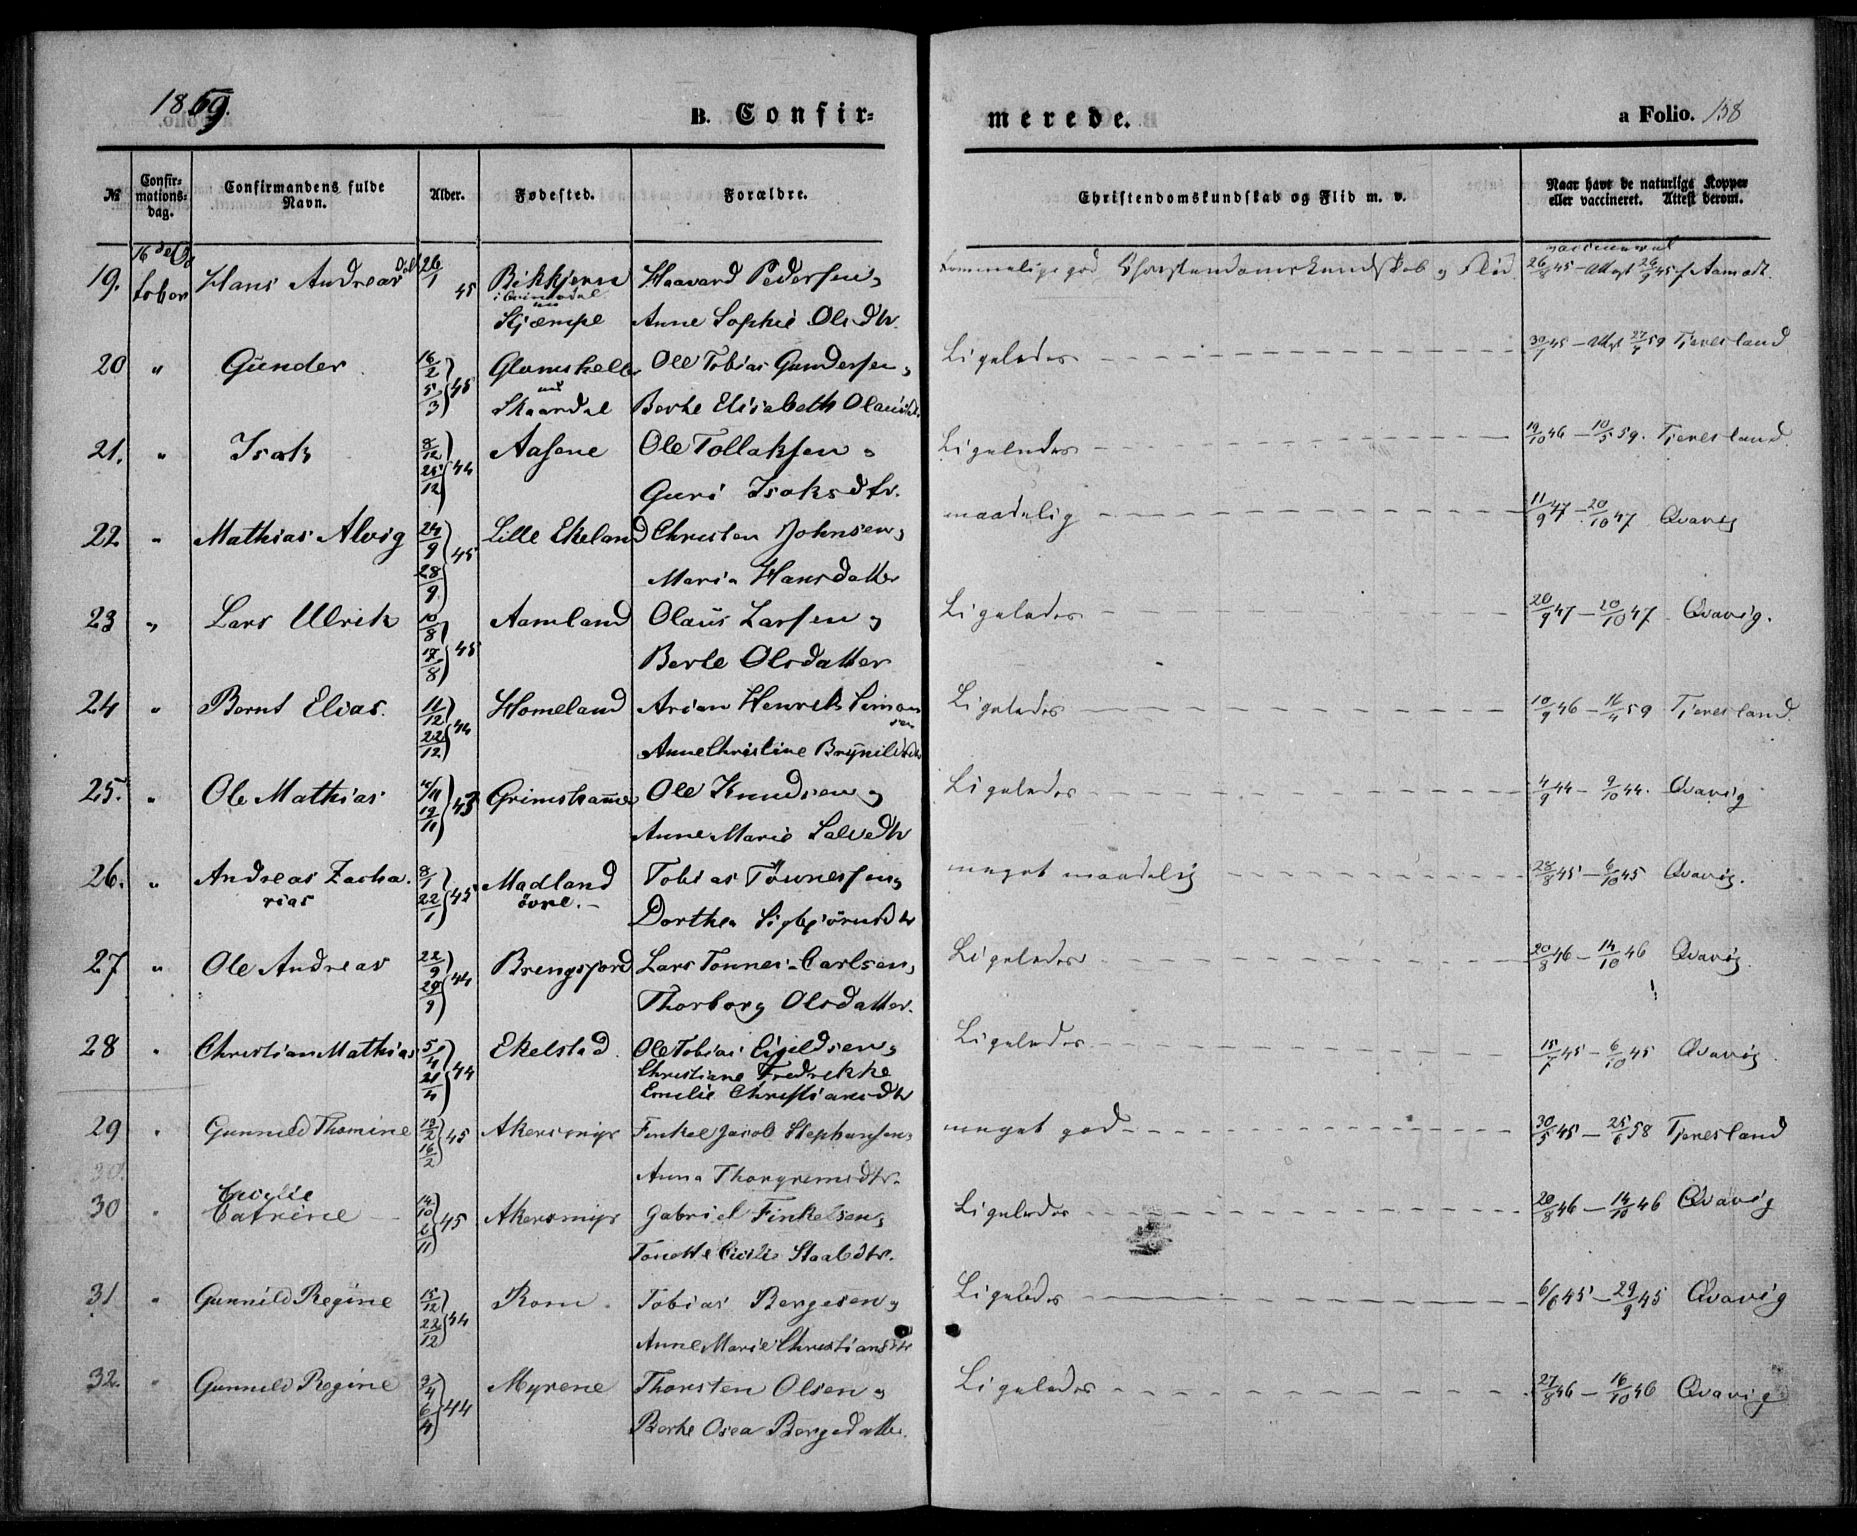 1859.
B. Confir-
merede.
a Folio. 158
№
Confir-
mations-
dag.
Confirmandens fulde
Navn.
Alder.
Fødested.
Forældre.
Christendomskundskab og Flid m. v.
Naar havt de naturlige Kopper
eller vaccineret. Attest derom.
19. 16de Oc
tober Hans Andreas 26/1 45 Birkjern Haavard Pedersen,
nu
Skjæmpe Anne Sophie Olsdtr.
god Christendomskundskab og Flid. vaccineret
26/8 45 — Attest 26/9 45 f Aamodt.
20 " Gunder 16/2 5/3 45 Ole Tobias Gundersen,
nu
Skaardal Berte Elisabeth
Ligeledes 30/7 45 — Attest 27/4 59 Tjersland
21. " Isak 8/12 25/12 44 Aasene Ole Tollaksen,
Guri Isaksdtr.
Ligeledes 19/10 46 — 10/5 59. Tjersland.
22 " Mathias Alvig 24/9 28/9 45 Lille Ekeland Christen Johnsen,
Maria Hansdatter
maadelig 11/9 47 — 20/10 47 Qvavig
23 " Lars Ulrik 10/8 17/8 45 Aamland Olaus Larsen,
Berte Olsdatter
Ligeledes 20/9 47 — 20/10 47 Qvavig.
24 " Bernt Elias. 11/12 22/12 44 Homeland Arian Henrik Simon
sen
Anne Christine Brynildsdtr
Ligeledes 10/9 46 — 16/4 59 Tjersland.
25. " Ole Mathias 4/11 19/11 43 Grimshamn Ole Knudsen,
Anne Marie Salvedtr
Ligeledes 4/9 44 — 9/10 44. Qvavig
26. " Andreas Zacha- 8/1 22/1 45 Madland Tobias Tønnesen,
rias øvre. Dorthea Sigbjørnsdtr
meget maadelig 28/8 45 — 6/10 45 Qvavig.
27 " Ole Andreas 22/9 29/9 44 Brengsfjord Lars Tønnes Carlsen,
Thorborg Olsdatter.
Ligeledes 20/8 46 — 14/10 46 Qvavig
28 " Christian Mathias 5/4 21/4 44 Ekelstad. Ole Tobias Eigeldsen,
Christiane Fredrikke
Emelie Christiansdtr
Ligeledes 15/7 45 — 6/10 45 Qvavig.
29 " Gunnild Thomine 13/2 16/2 45 Akersmyr Finkel Jacob Stephansen,
Anna Thorgrimsdtr.
meget god 30/5 45 — 25/6 58 Tjersland
30.
30 " Cecilie
Catrine 14/10 2/11 45 Akersmyr Gabriel Finkelsen,
Tonette Cecilie Staaledtr.
Ligeledes 20/8 46 — 14/10 46 Qvavig
31 " Gunnild Regine 15/12 22/12 44 Rom. Tobias Bergesen,
Anne Marie Christiansdtr
Ligeledes 6/6 45 — 29/9 45 Qvavig
32. " Gunnild Regine 3/4 6/4 44 Myrene Thorsten Olsen,
Berte Osea Bergedatter.
Ligeledes 27/8 46 — 16/10 46 Qvavig